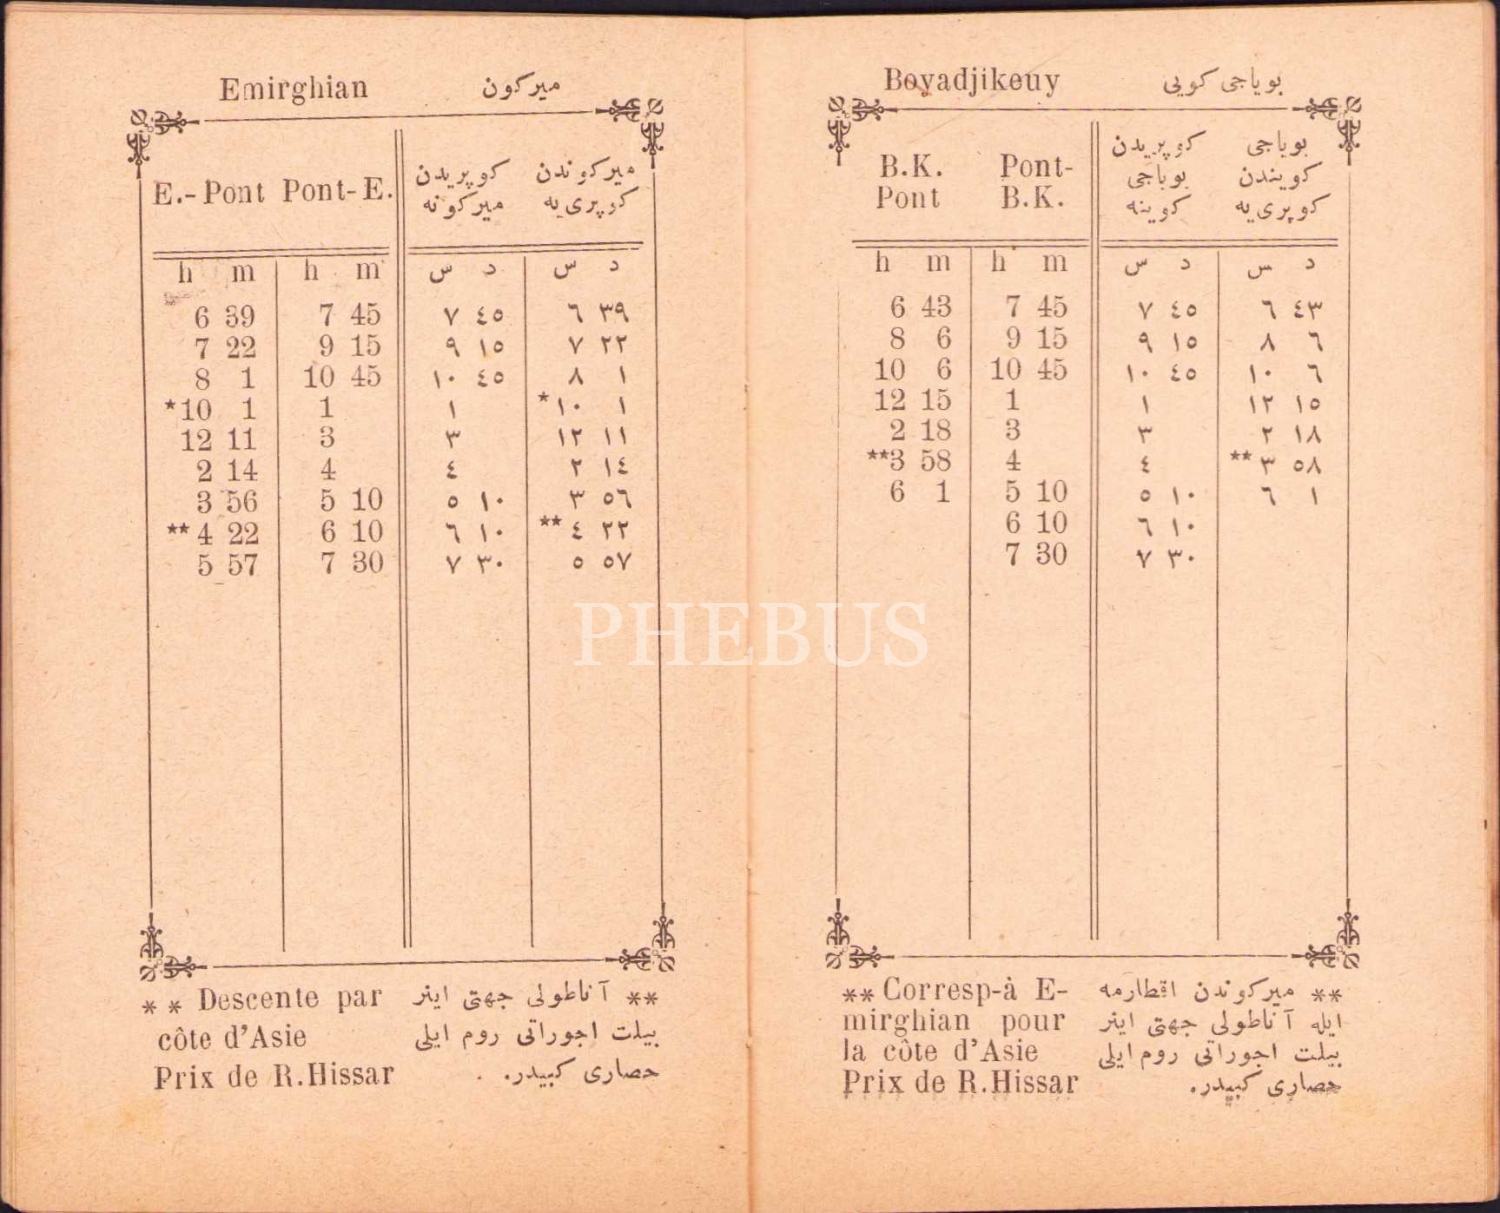 Emirghian ميركون
E.-Pont Pont-E. كوپریدن ميركوندن
ميركونه كوپری یه
h m h m س د س د
6 39 7 45 ٧ ٤٥ ٦ ٣٩
7 22 9 15 ٩ ١٥ ٧ ٢٢
8 1 10 45 ١٠ ٤٥ ٨ ١
*10 1 1 ١ *١٠ ١
12 11 3 ٣ ١٢ ١١
2 14 4 ٤ ٢ ١٤
3 56 5 10 ٥ ١٠ ٣ ٥٦
**4 22 6 10 ٦ ١٠ **٤ ٢٢
5 57 7 30 ٧ ٣٠ ٥ ٥٧
** Descente par
côte d'Asie
Prix de R.Hissar
** آناطولی جهتی اینر
بیلت اجوراتی روم ایلی
حصاری كبیدر.
Boyadjikeuy بویاجی كویی
B.K. Pont- كوپریدن بویاجی
Pont B.K. بویاجی كویندن
كوینه كوپری یه
h m h m س د س د
6 43 7 45 ٧ ٤٥ ٦ ٤٣
8 6 9 15 ٩ ١٥ ٨ ٦
10 6 10 45 ١٠ ٤٥ ١٠ ٦
12 15 1 ١ ١٢ ١٥
2 18 3 ٣ ٢ ١٨
**3 58 4 ٤ **٣ ٥٨
6 1 5 10 ٥ ١٠ ٦ ١
6 10 ٦ ١٠
7 30 ٧ ٣٠
** Corresp-à E-
mirghian pour
la côte d'Asie
Prix de R.Hissar
** ميركوندن اقطارمه
ایله آناطولی جهتی اینر
بیلت اجوراتی روم ایلی
حصاری كبیدر.
PHEBUS